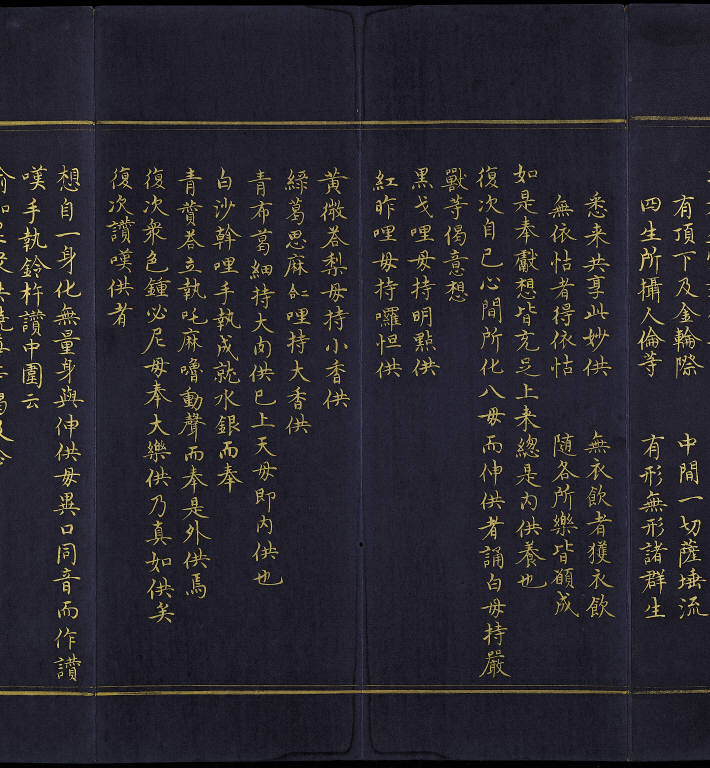 有頂下及金輪際　中間一切薩埵流
四生所攝人倫等　有形無形諸群生
悉来共享此妙供　無衣飲者獲衣飲
無依怙者得依怙　随各所樂皆願成
如是奉獻想皆充足上来總是内供養也
復次自己心間所化八母而伸供者誦白母持嚴
獸等偈意想
黑戈哩母持明點供
紅昨哩母持囉怛供
黃微荅梨母持小香供
綠葛思麻㕿哩持大香供
青布葛細持大肉供已上天母即内供也
白沙斡哩手執成就水銀而奉
青贊荅立執吒麻嚕動聲而奉是外供焉
復次衆色鍾必尼母奉大樂供乃真如供矣
復次讚嘆供者
想自一身化無量身與伸供母異口同音而作讚
嘆手執鈴杵讚中圍云